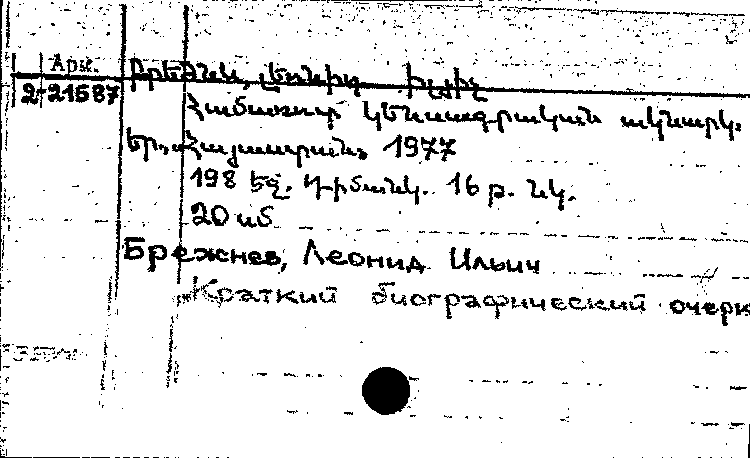 Арм.
2-21587
Բրեժնև, Լեոնիդ Իլյիչ
Համառոտ կենսագրական ակնարկ.
Եր., Հայաստան, 1977
198 եջ. դիմանկ. 16 թ. նկ.
20 սմ
Брежнев, Леонид Ильич
Краткий биографический очерк